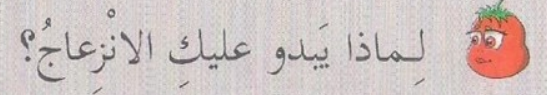 لِماذا يَبدو عليكِ الانْزِعاجُ؟